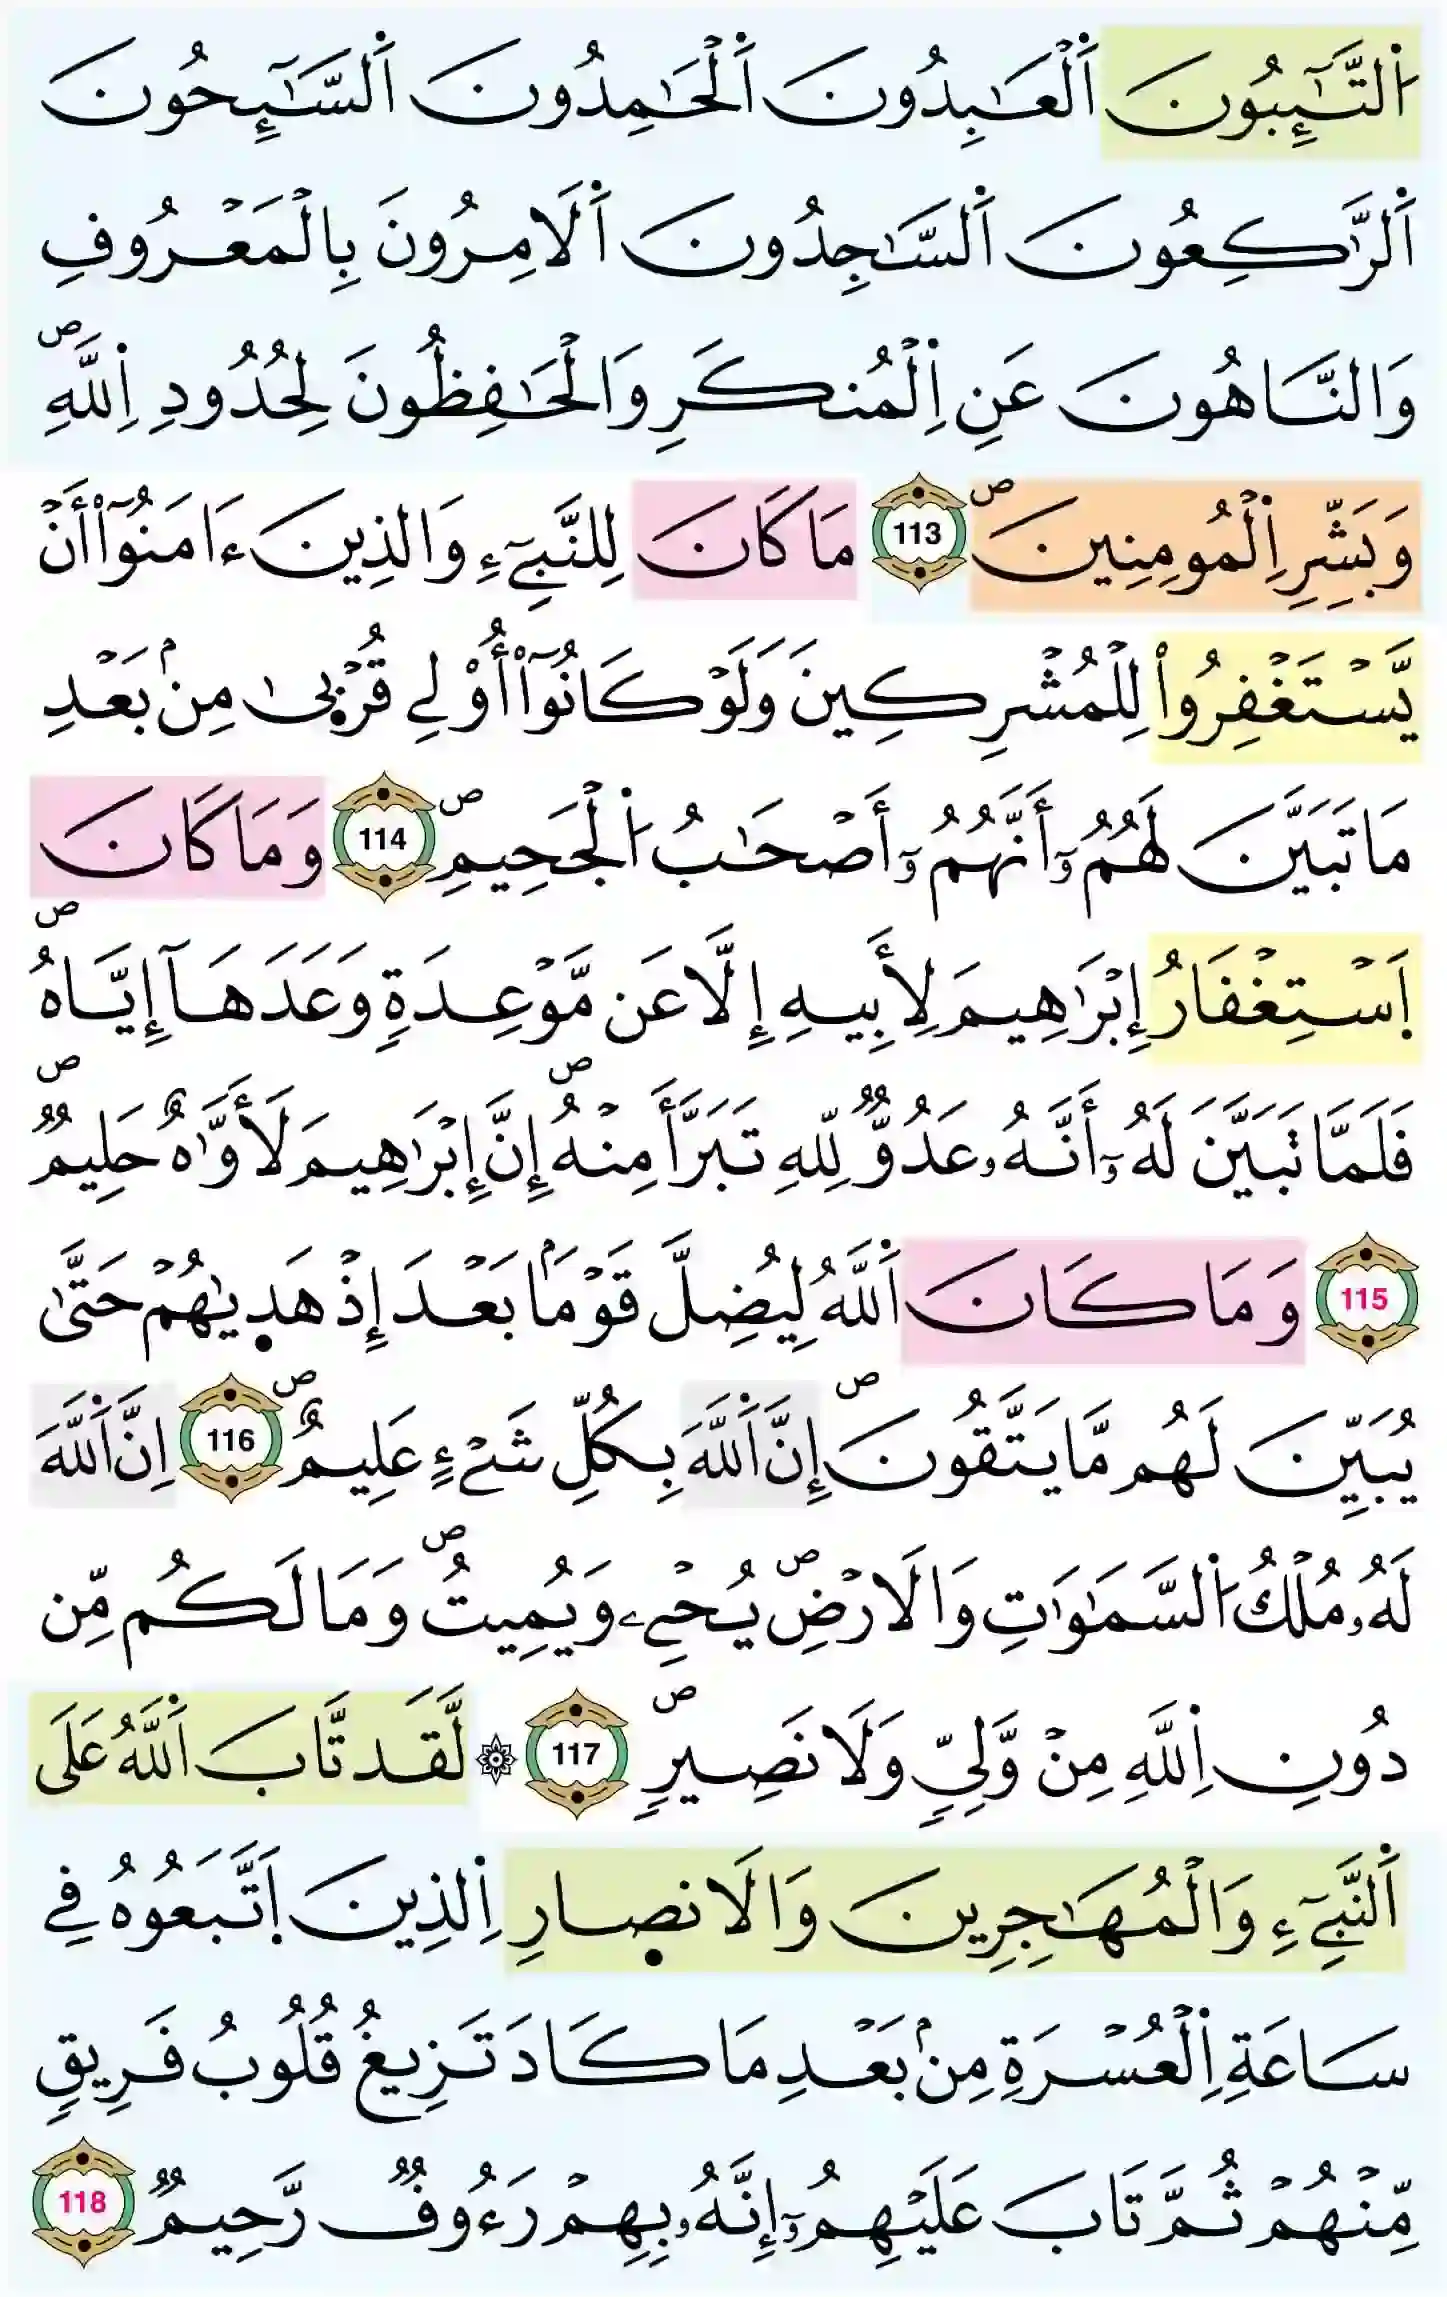 اَ۬لتَّٰٓئِبُونَ اَ۬لْعَٰبِدُونَ اَ۬لْحَٰمِدُونَ اَ۬لسَّٰٓئِحُونَ
اَ۬لرَّٰكِعُونَ اَ۬لسَّٰجِدُونَ اَ۬لَامِرُونَ بِالْمَعْرُوفِ
وَالنَّاهُونَ عَنِ اِ۬لْمُنكَرِ وَالْحَٰفِظُونَ لِحُدُودِ اِ۬للَّهِۖ
وَبَشِّرِ اِ۬لْمُومِنِينَۖ 113 مَا كَانَ لِلنَّبِےٓءِ وَالذِينَ ءَامَنُوٓاْ أَنْ
يَّسْتَغْفِرُواْ لِلْمُشْرِكِينَ وَلَوْ كَانُوٓاْ أُوْلِے قُرْب۪يٰ مِنۢ بَعْدِ
مَا تَبَيَّنَ لَهُمُۥٓ أَنَّهُمُۥٓ أَصْحَٰبُ اُ۬لْجَحِيمِۖ 114 وَمَا كَانَ
اَ۪سْتِغْفَارُ إِبْرَٰهِيمَ لِأَبِيهِ إِلَّا عَن مَّوْعِدَةٖ وَعَدَهَآ إِيَّاهُۖ
فَلَمَّا تَبَيَّنَ لَهُۥٓ أَنَّهُۥ عَدُوّٞ لِّلهِ تَبَرَّأَ مِنْهُۖ إِنَّ إِبْرَٰهِيمَ لَأَوَّٰهٌ حَلِيمٞۖ
115 وَمَا كَانَ اَ۬للَّهُ لِيُضِلَّ قَوْماَۢ بَعْدَ إِذْ هَد۪يٰهُمْ حَتَّيٰ
يُبَيِّنَ لَهُم مَّا يَتَّقُونَۖ إِنَّ اَ۬للَّهَ بِكُلِّ شَےْءٍ عَلِيمٌۖ 116 اِنَّ اَ۬للَّهَ
لَهُۥ مُلْكُ اُ۬لسَّمَٰوَٰتِ وَالَارْضِۖ يُحْيِۦ وَيُمِيتُۖ وَمَا لَكُم مِّن
دُونِ اِ۬للَّهِ مِنْ وَّلِيّٖ وَلَا نَصِيرٖۖ 117 ۞ لَّقَد تَّابَ اَ۬للَّهُ عَلَي
اَ۬لنَّبِےٓءِ وَالْمُهَٰجِرِينَ وَالَانص۪ارِ اِ۬لذِينَ اَ۪تَّبَعُوهُ فِے
سَاعَةِ اِ۬لْعُسْرَةِ مِنۢ بَعْدِ مَا كَادَ تَزِيغُ قُلُوبُ فَرِيقٖ
مِّنْهُمْ ثُمَّ تَابَ عَلَيْهِمُۥٓ إِنَّهُۥ بِهِمْ رَءُوفٞ رَّحِيمٞ 118